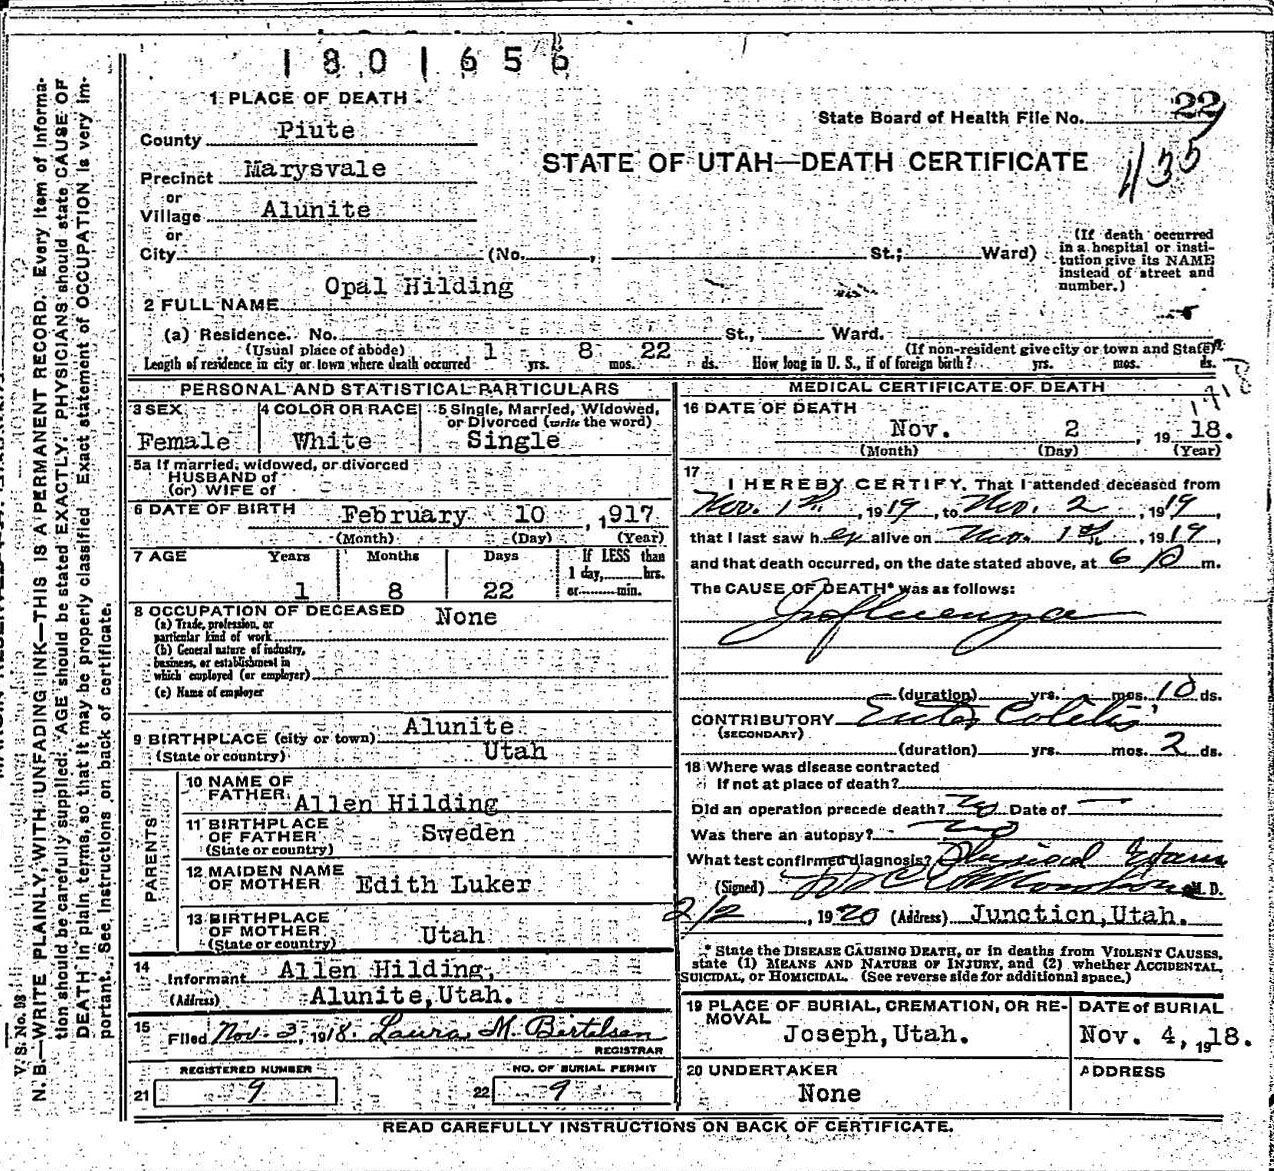 1801656
1 PLACE OF DEATH
County Piute
Precinct Marysvale
or
Village Alunite
or
City (No. , St.; Ward)
State Board of Health File No. 22
435
STATE OF UTAH—DEATH CERTIFICATE
(If death occurred
in a hospital or insti-
tution give its NAME
instead of street and
number.)
2 FULL NAME Opal Hilding
(a) Residence. No. St., Ward.
(Usual place of abode) (If non-resident give city or town and State)
Length of residence in city or town where death occurred 1 yrs. 8 mos. 22 ds. How long in U. S., if of foreign birth? yrs. mos. ds.
PERSONAL AND STATISTICAL PARTICULARS
3 SEX
Female
4 COLOR OR RACE
White
5 Single, Married, Widowed,
or Divorced (write the word)
Single
5a If married, widowed, or divorced
HUSBAND of
(or) WIFE of
6 DATE OF BIRTH February 10, 1917
(Month) (Day) (Year)
7 AGE Years Months Days If LESS than
1 day, hrs.
1 8 22 or min.
8 OCCUPATION OF DECEASED None
(a) Trade, profession, or
particular kind of work
(b) General nature of industry,
business, or establishment in
which employed (or employer)
(c) Name of employer
9 BIRTHPLACE (city or town) Alunite
(State or country) Utah
PARENTS
10 NAME OF
FATHER Allen Hilding
11 BIRTHPLACE
OF FATHER Sweden
(State or country)
12 MAIDEN NAME
OF MOTHER Edith Luker
13 BIRTHPLACE
OF MOTHER
(State or country) Utah
14
Informant Allen Hilding,
(Address) Alunite, Utah.
15
Filed Nov. 3, 1918. Laura M. Bertelsen
REGISTRAR
REGISTERED NUMBER
21 9
NO. OF BURIAL PERMIT
22 9
MEDICAL CERTIFICATE OF DEATH
1918
16 DATE OF DEATH
Nov. 2, 1918.
(Month) (Day) (Year)
17
I HEREBY CERTIFY, That I attended deceased from
Nov. 1st, 1919, to Nov. 2, 1919,
that I last saw her alive on Nov. 1st, 1919,
and that death occurred, on the date stated above, at 6 P m.
The CAUSE OF DEATH* was as follows:
Influenza
(duration) yrs. mos. 10 ds.
CONTRIBUTORY Entero Colitis
(SECONDARY)
(duration) yrs. mos. 2 ds.
18 Where was disease contracted
If not at place of death?
Did an operation precede death? No Date of —
Was there an autopsy? No
What test confirmed diagnosis? Physical Exam
(Signed) M. D.
2/2, 1920 (Address) Junction, Utah.
* State the DISEASE CAUSING DEATH, or in deaths from VIOLENT CAUSES,
state (1) MEANS AND NATURE OF INJURY, and (2) whether ACCIDENTAL,
SUICIDAL, or HOMICIDAL. (See reverse side for additional space.)
19 PLACE OF BURIAL, CREMATION, OR RE-
MOVAL
Joseph, Utah.
DATE OF BURIAL
Nov. 4, 1918.
20 UNDERTAKER
None
ADDRESS
READ CAREFULLY INSTRUCTIONS ON BACK OF CERTIFICATE.
V. S. No. 98
N. B.—WRITE PLAINLY, WITH UNFADING INK—THIS IS A PERMANENT RECORD. Every item of informa-
tion should be carefully supplied. AGE should be stated EXACTLY. PHYSICIANS should state CAUSE OF
DEATH in plain terms, so that it may be properly classified. Exact statement of OCCUPATION is very im-
portant. See instructions on back of certificate.